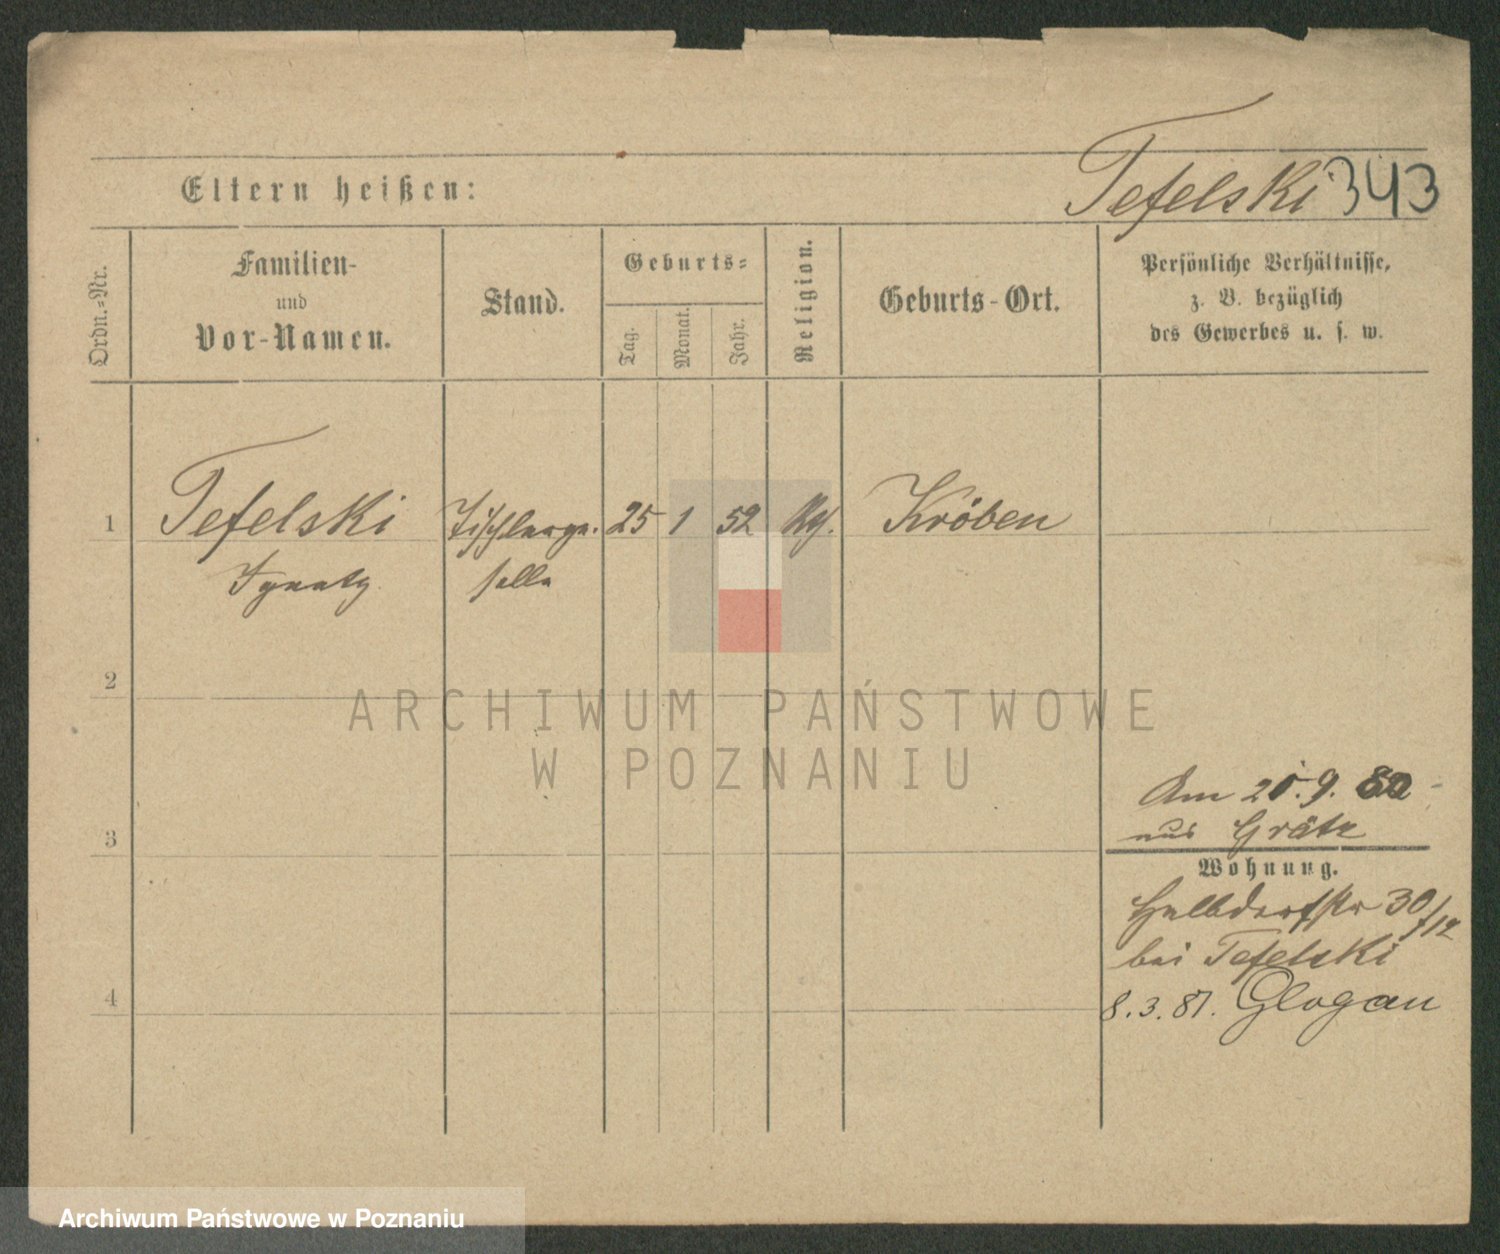 Tefelski 343
Eltern heißen:
Ordn.-Nr.
Familien-
und
Vor-Namen.
Stand.
Geburts-
Tag.
Monat.
Jahr.
Religion.
Geburts-Ort.
Persönliche Verhältnisse,
z. B. bezüglich
des Gewerbes u. s. w.
1 Tefelski Tischlerge- 25 1 52 Kröben
Ignatz selle
2
ARCHIWUM PAŃSTWOWE
W POZNANIU
3
Am 9. 80
aus Grätz
Wohnung.
Halbdorfstr 30/12
bei Tefelski
4
8.3.81. Glogau
Archiwum Państwowe w Poznaniu